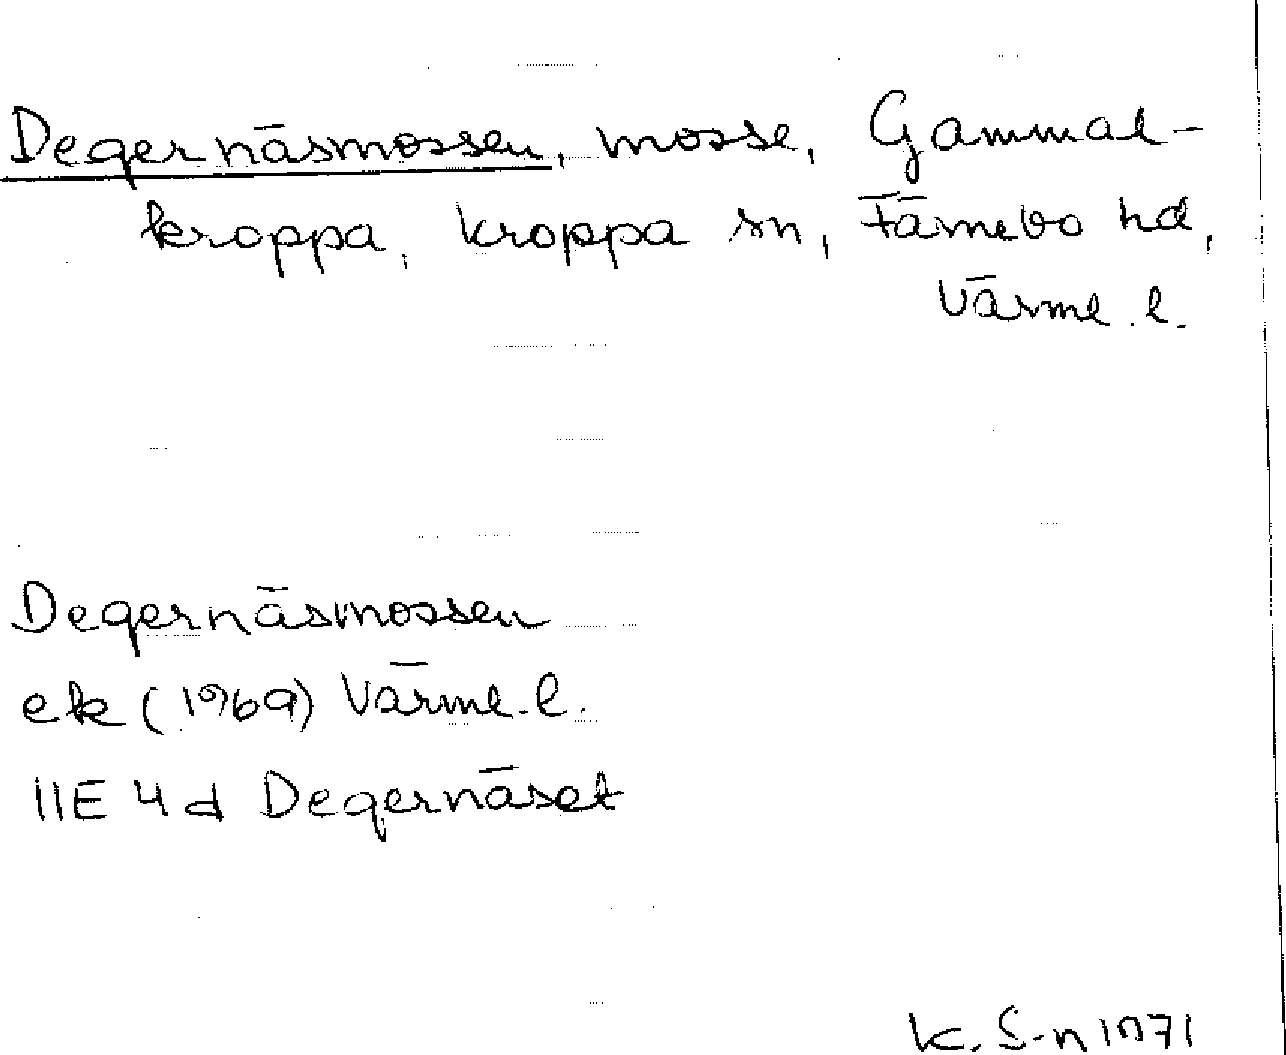 Degernäsmossen, mosse, Gammal-
kroppa, Kroppa sn, Färnebo hd,
Värml. l.
Degernäsmossen
ek (1969) Värml. l.
11E 4d Degernäset
K. S-n 1971